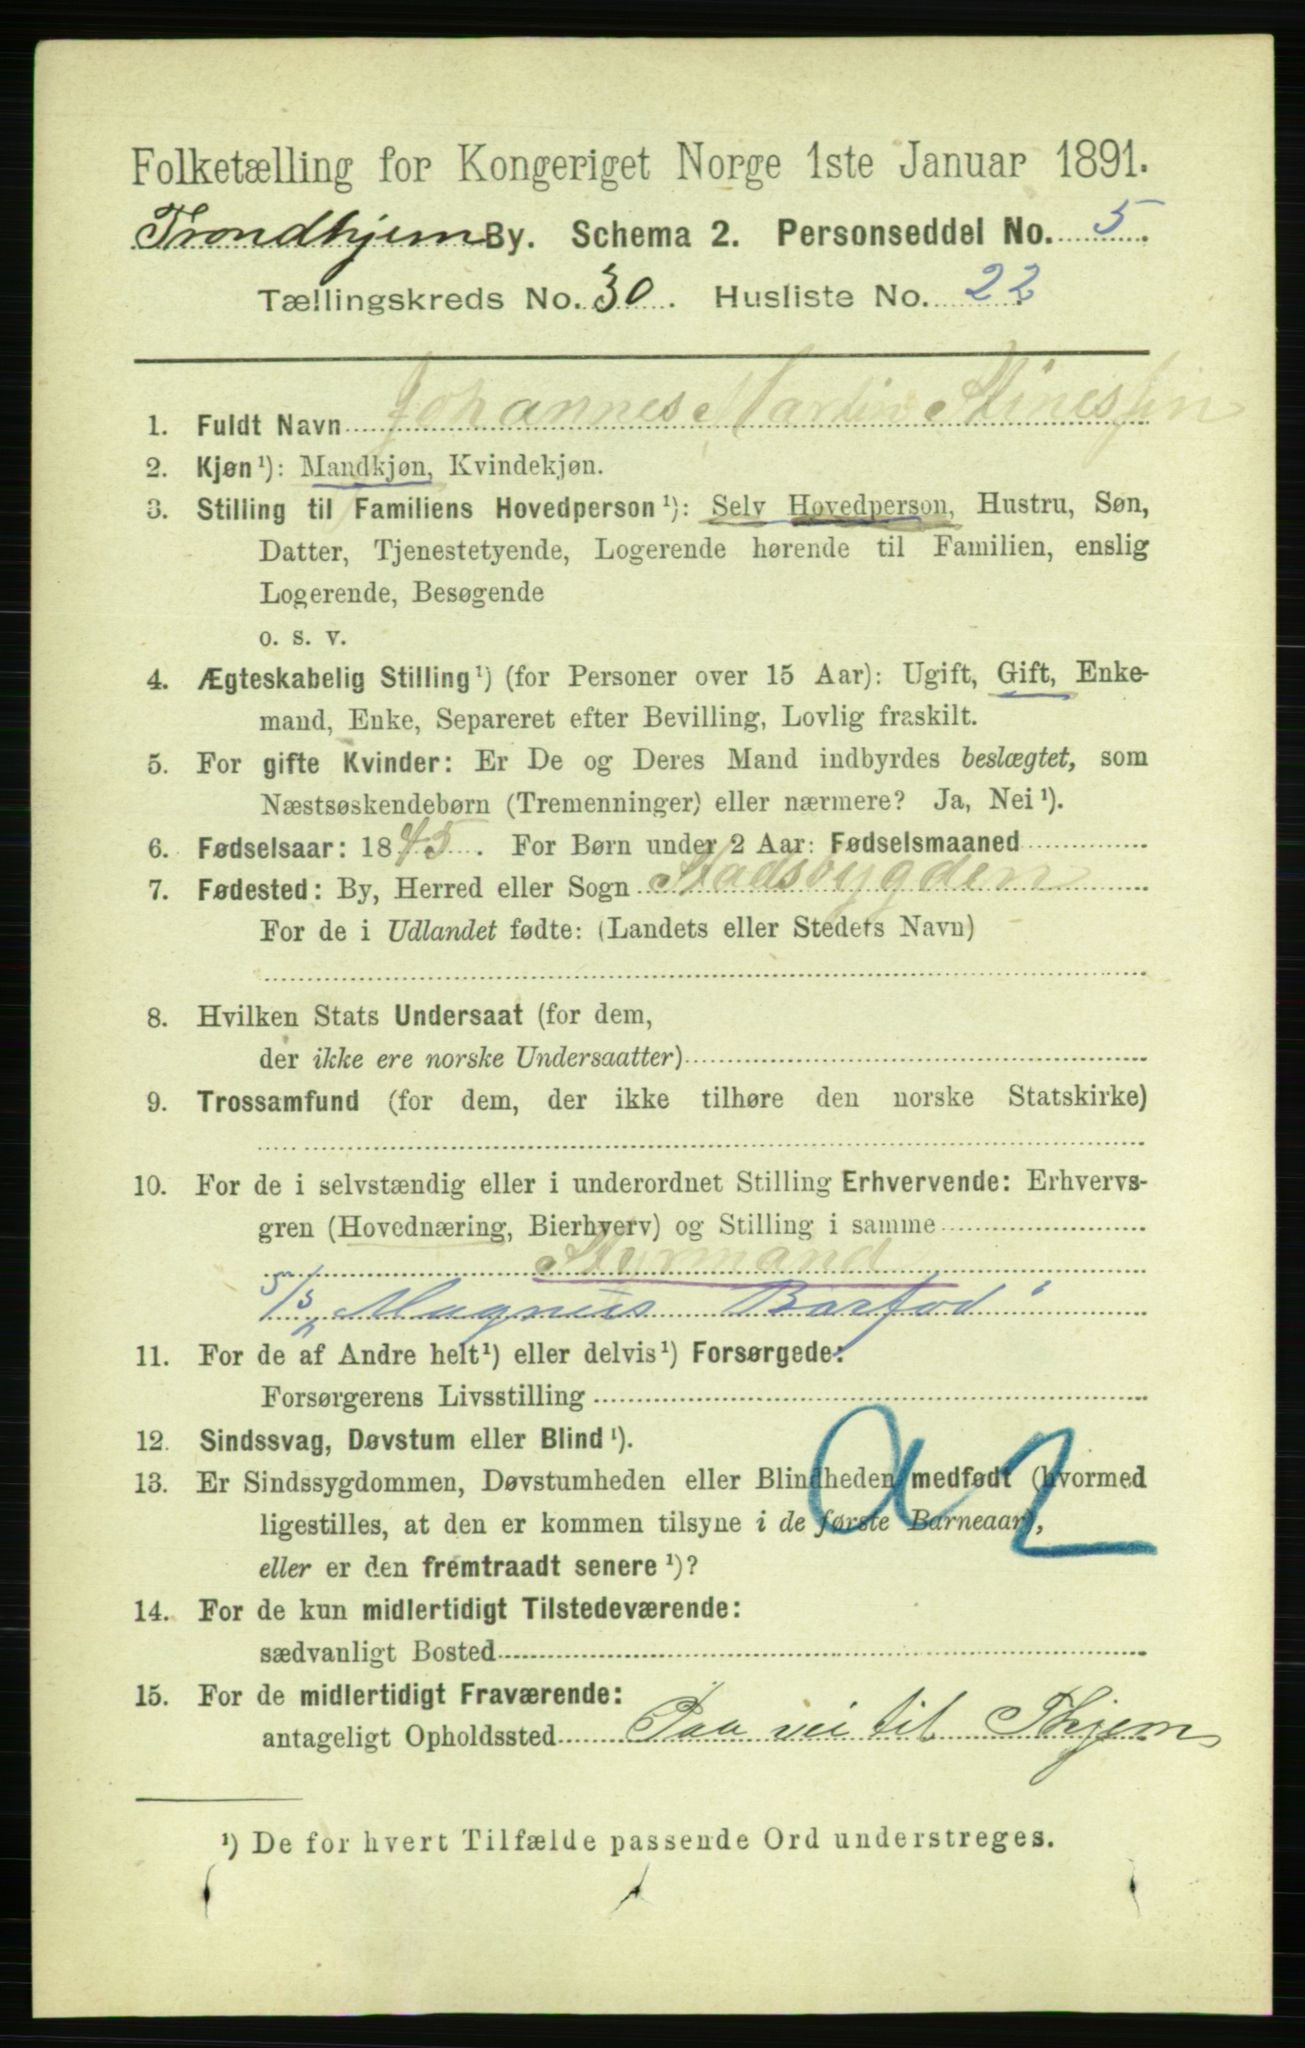 Folketælling for Kongeriget Norge 1ste Januar 1891.
Trondhjem By. Schema 2. Personseddel No. 5
Tællingskreds No. 30. Husliste No. 22
1. Fuldt Navn Johannes Martin
2. Kjøn¹): Mandkjøn, Kvindekjøn.
3. Stilling til Familiens Hovedperson¹): Selv Hovedperson, Hustru, Søn,
Datter, Tjenestetyende, Logerende hørende til Familien, enslig
Logerende, Besøgende
o. s. v.
4. Ægteskabelig Stilling¹) (for Personer over 15 Aar): Ugift, Gift, Enke-
mand, Enke, Separeret efter Bevilling, Lovlig fraskilt.
5. For gifte Kvinder: Er De og Deres Mand indbyrdes beslægtet, som
Næstsøskendebørn (Tremenninger) eller nærmere? Ja, Nei¹).
6. Fødselsaar: 1845. For Børn under 2 Aar: Fødselsmaaned
7. Fødested: By, Herred eller Sogn Stadsbygden
For de i Udlandet fødte: (Landets eller Stedets Navn)
8. Hvilken Stats Undersaat (for dem,
der ikke ere norske Undersaatter)
9. Trossamfund (for dem, der ikke tilhøre den norske Statskirke)
10. For de i selvstændig eller i underordnet Stilling Erhvervende: Erhvervs-
gren (Hovednæring, Bierhverv) og Stilling i samme
Styrmand
S/S „Magnus Barfod"
11. For de af Andre helt¹) eller delvis¹) Forsørgede:
Forsørgerens Livsstilling
12. Sindssvag, Døvstum eller Blind¹).
13. Er Sindssygdommen, Døvstumheden eller Blindheden medfødt (hvormed
ligestilles, at den er kommen tilsyne i de første Barneaar),
eller er den fremtraadt senere¹)?
14. For de kun midlertidigt Tilstedeværende:
sædvanligt Bosted
15. For de midlertidigt Fraværende:
antageligt Opholdssted Paa vei til Thjem
¹) De for hvert Tilfælde passende Ord understreges.